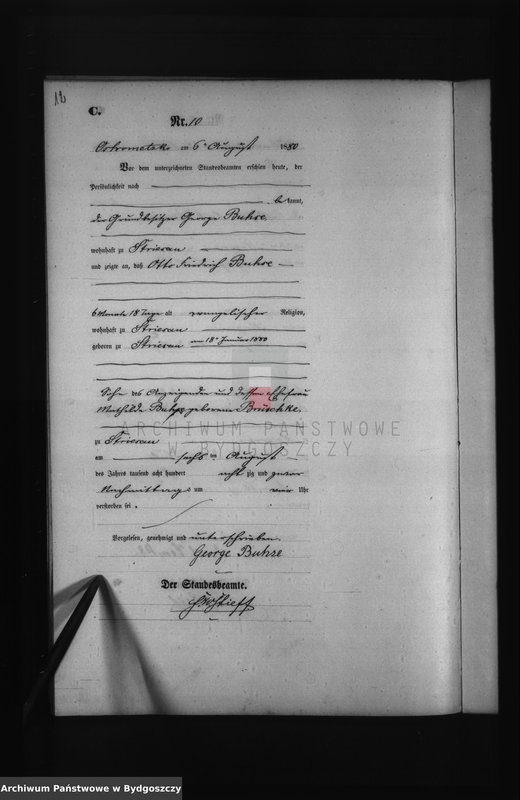 12
C.
Nr. 10
Ostrometzko am 6n August 1880
Vor dem unterzeichneten Standesbeamten erschien heute, der
Persönlichkeit nach
be kannt,
der Grundbesitzer George Buhse
wohnhaft zu
und zeigte an, daß Otto Friedrich Buhse
6 Monate 18 Tage alt evangelischer Religion,
wohnhaft zu
geboren zu am 18n Januar 1880
Sohn des Anzeigenden und dessen Ehefrau
Mathilde Buhse geborene Brüschke,
ARCHIWUM PAŃSTWOWE
W BYDGOSZCZY
zu
am sechs ten August
des Jahres tausend acht hundert acht zig und zwar
Nachmittags um vier Uhr
verstorben sei.
Vorgelesen, genehmigt und unterschrieben.
George Buhse
Der Standesbeamte.
Archiwum Państwowe w Bydgoszczy